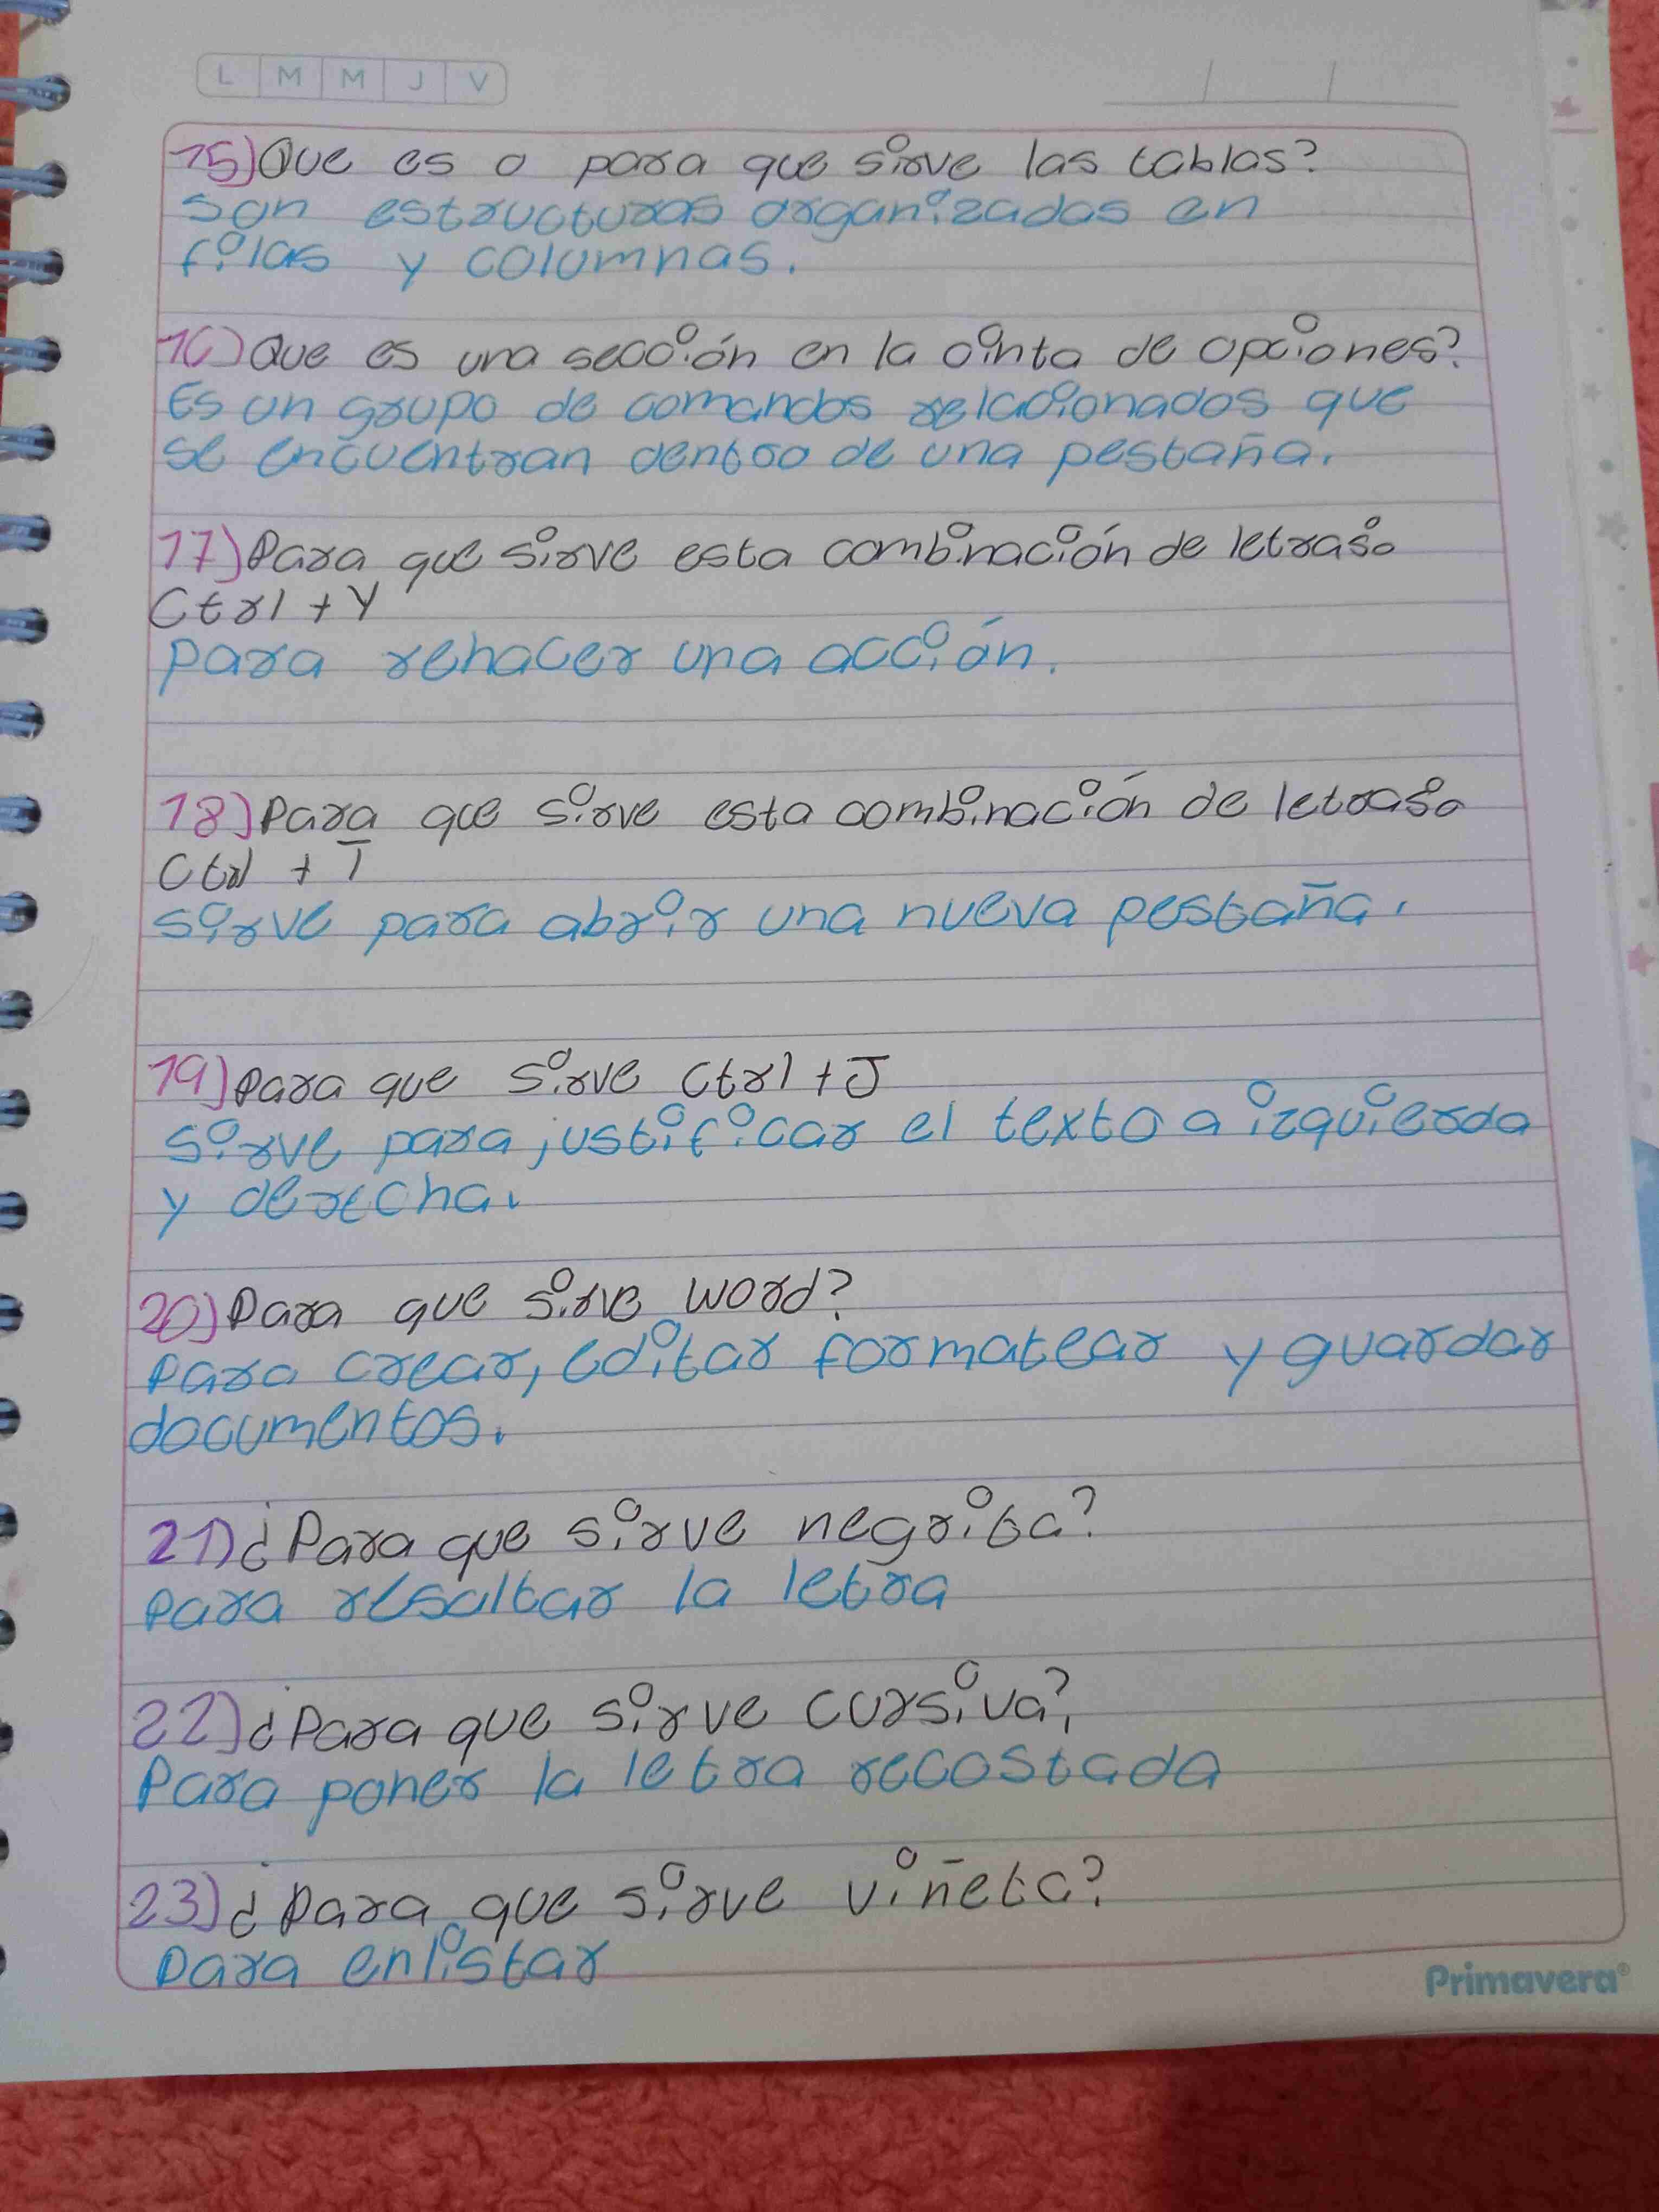 L M M J V
15) Que es o para que sirve las tablas?
Son estructuras organizadas en
filas y columnas.
16) Que es una sección en la cinta de opciones?
Es un grupo de comandos relacionados que
se encuentran dentro de una pestaña.
17) Para que sirve esta combinación de letras:
Ctrl + Y
para rehacer una acción.
18) Para que sirve esta combinación de letras:
Ctrl + T
Sirve para abrir una nueva pestaña.
19) Para que sirve Ctrl + J
Sirve para justificar el texto a izquierda
y derecha.
20) Para que sirve word?
Para crear, editar formatear y guardar
documentos.
21) ¿Para que sirve negrita?
Para resaltar la letra
22) ¿Para que sirve cursiva?
Para poner la letra recostada
23) ¿Para que sirve viñeta?
Para enlistar
Primavera®